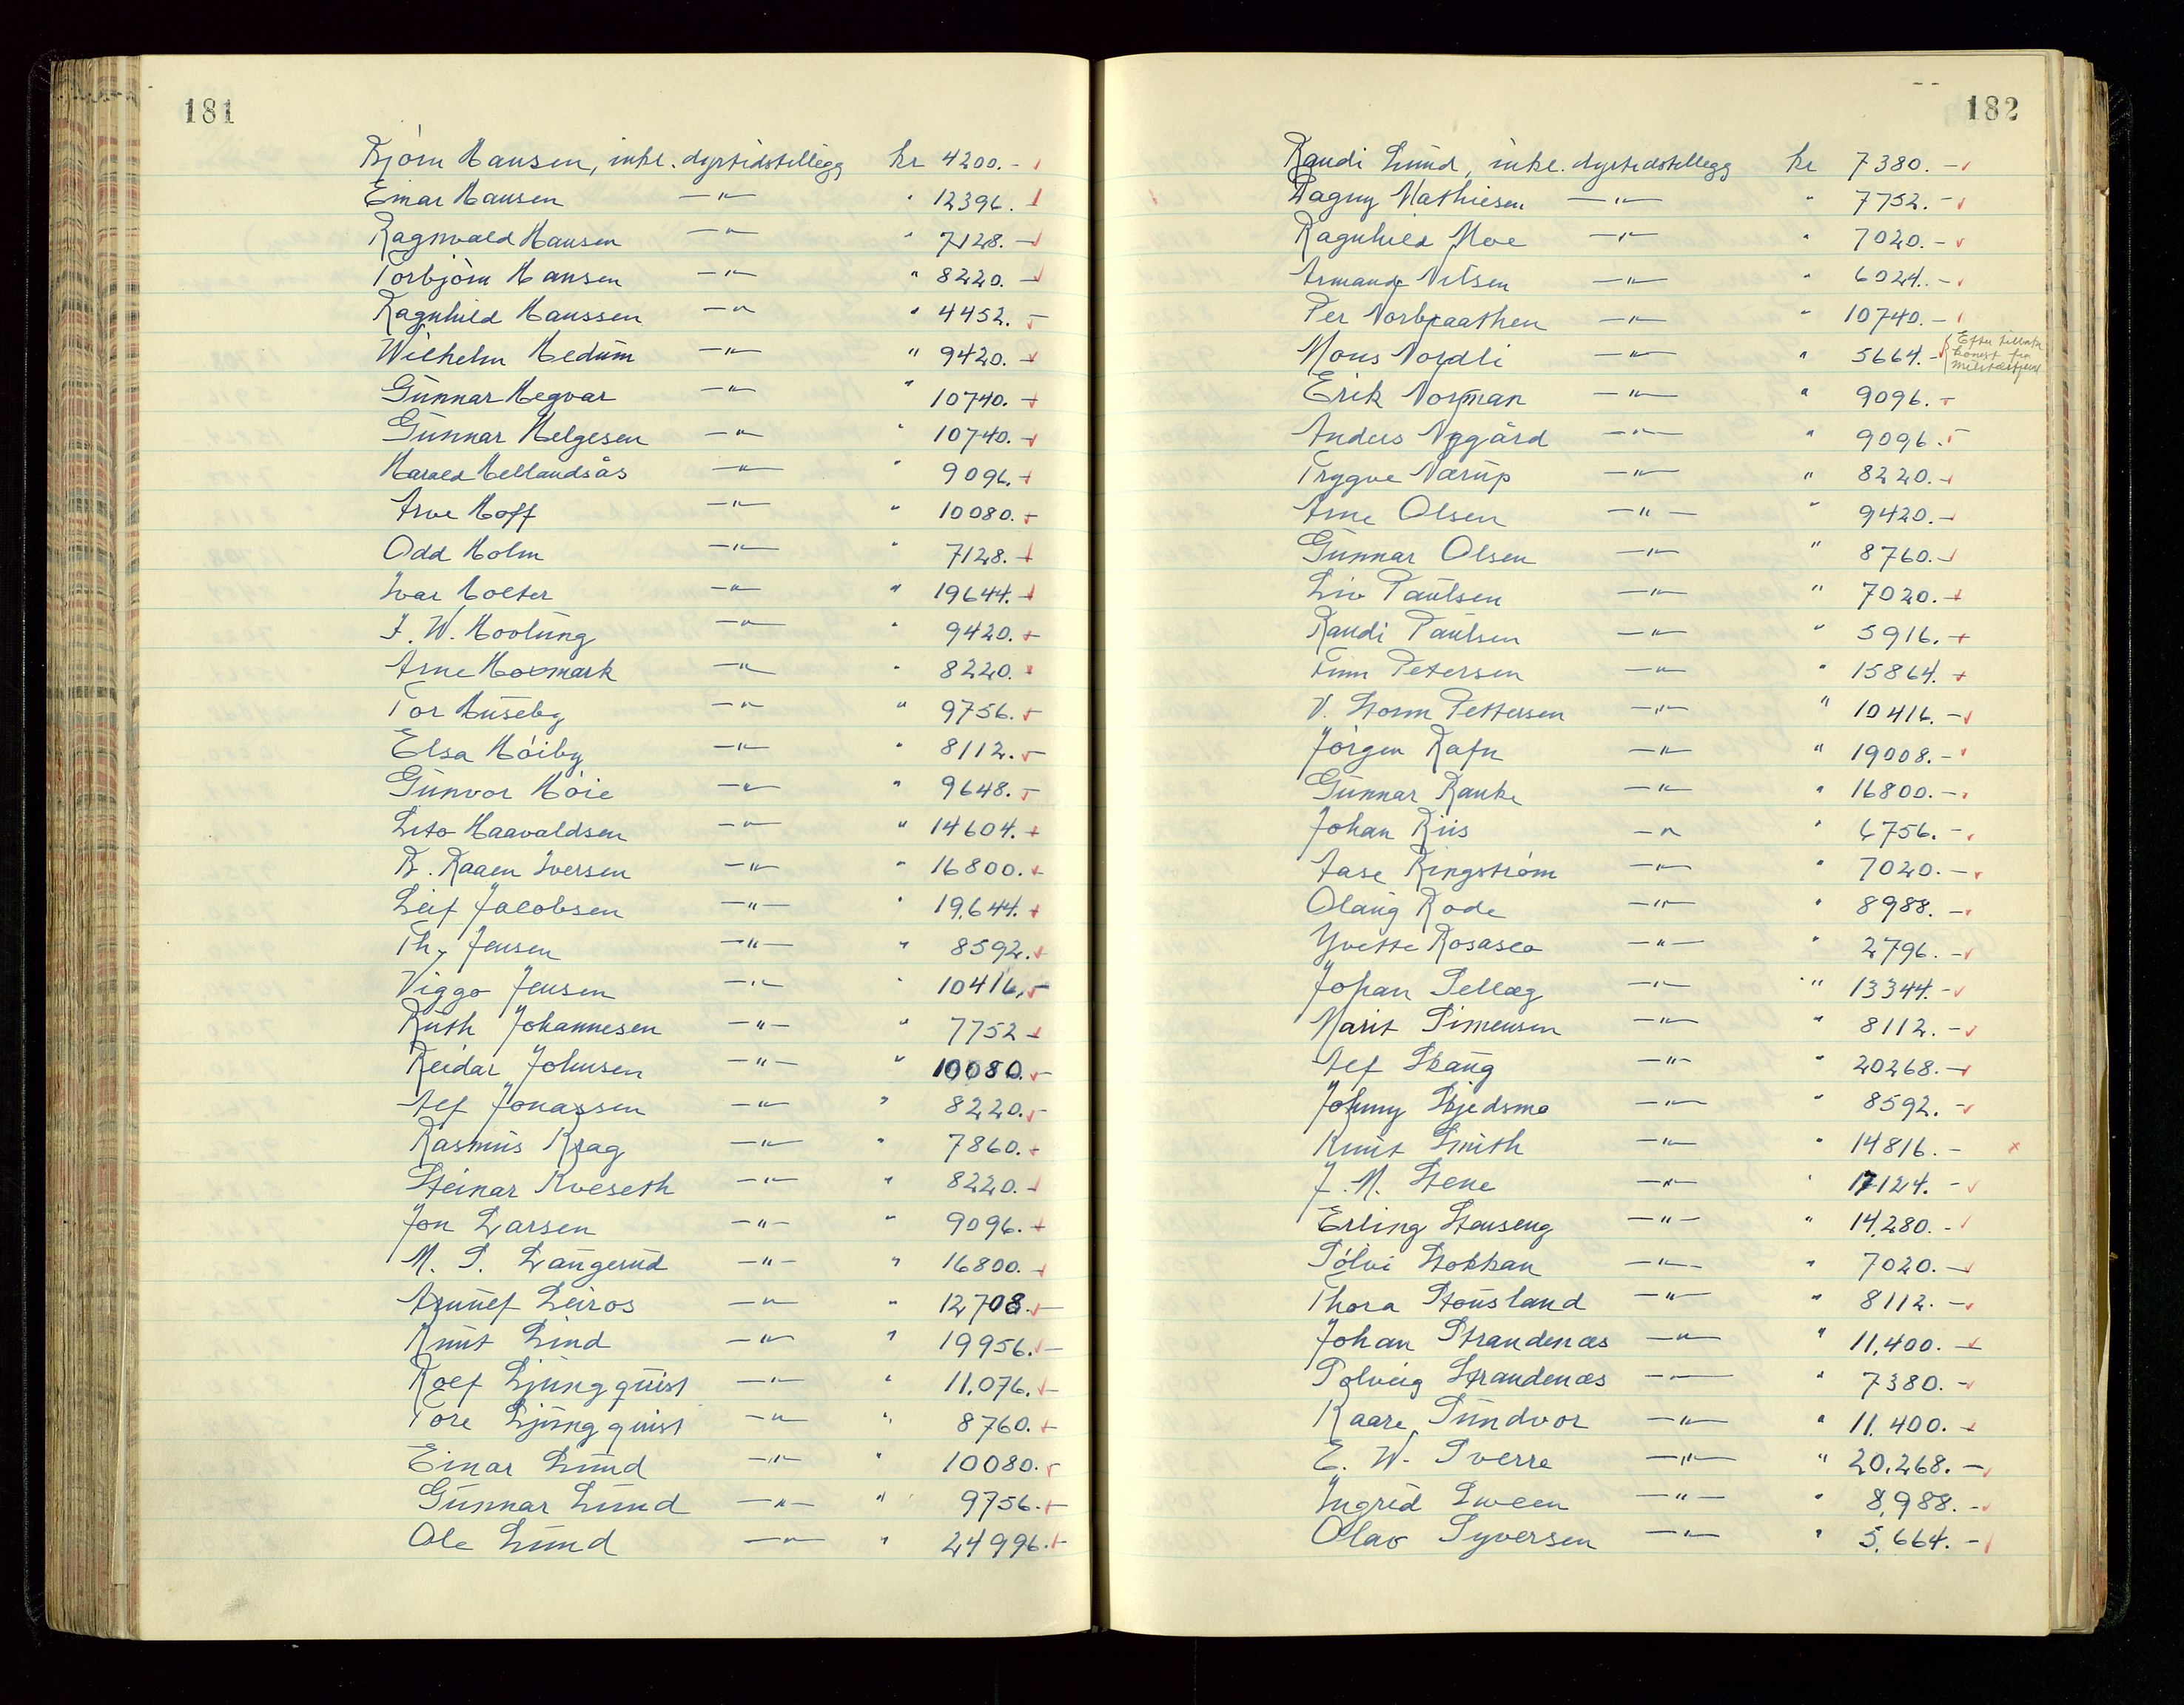 181
Björn Hansen, inkl. dyrtidstillegg kr 4200.-
Einar Hansen —"— " 12396.
Ragnvald Hansen —"— " 7128.-
Torbjörn Hansen —"— " 8220.-
Ragnhild Hanssen —"— " 4452.-
Wilhelm Hedum —"— " 9420.-
Gunnar Hegvar —"— " 10740.-
Gunnar Helgesen —"— " 10740.-
Harald Hellandsås —"— " 9096.-
Arve Hoff —"— " 10080.-
Odd Holm —"— " 7128.-
Ivar Holter —"— " 19644.-
F. W. Hovlung —"— " 9420.-
Arne Hoxmark —"— " 8220.
Tor Huseby —"— " 9756.-
Elsa Höiby —"— " 8112.-
Gunvor Höie —"— " 9648.-
Leto Haavaldsen —"— " 14604.-
B. Raaen Iversen —"— " 16800.-
Leif Jacobsen —"— " 19.644.-
Thy Jensen —"— " 8592.-
Viggo Jensen —"— " 10416.-
Ruth Johannesen —"— " 7752-
Reidar Johnsen —"— " 10080.-
Alf Jonassen —"— " 8220.-
Rasmus Krag —"— " 7860.-
Steinar Kveseth —"— " 8220.-
Jon Larsen —"— " 9096.-
M. S. Laugerud —"— " 16800.-
Arnulf Leiros —"— " 12708.-
Knut Lind —"— " 19956.-
Rolf Ljungquist —"— " 11.076.-
Tore Ljungquist —"— " 8760.-
Einar Lund —"— " 10080.-
Gunnar Lund —"— " 9756.-
Ole Lund —"— " 24996.-
182
Randi Lund, inkl. dyrtidstillegg kr 7380.-
Dagny Mathiesen —"— " 7752.-
Ragnhild Moe —"— " 7020.-
Armand Nilsen —"— " 6024.-
Per Norbraathen —"— " 10740.-
Mons Nordli —"— " 5664.- Efter tilbakekomst fra militærtjen.
Erik Norman —"— " 9096.-
Anders Nygård —"— " 9096.-
Trygve Nærup —"— " 8220.-
Arne Olsen —"— " 9420.-
Gunnar Olsen —"— " 8760.-
Liv Paulsen —"— " 7020.-
Randi Paulsen —"— " 5916.-
Finn Petersen —"— " 15864.-
V. Storm Pettersen —"— " 10416.-
Jörgen Rafn —"— " 19008.-
Gunnar Ranke —"— " 16800.-
Johan Riis —"— " 6756.-
Aase Ringström —"— " 7020.-
Olaug Rode —"— " 8988.-
Yvette Rosasco —"— " 2796.-
Johan Sellæg —"— " 13344.-
Marit Simensen —"— " 8112.-
Alf Skaug —"— " 20268.-
Johnny Skjedsmo —"— " 8592.-
Knut Smith —"— " 14816.- x
J. M. Stene —"— " 17124.-
Erling Stenseng —"— " 14.280.-
Sölvi Stokkan —"— " 7020.-
Thora Stousland —"— " 8112.-
Johan Strandenæs —"— " 11.400.-
Solveig Strandenæs —"— " 7380.-
Kaare Sundvor —"— " 11.400.-
E. W. Sverre —"— " 20.268.-
Ingrid Sween —"— " 8.988.-
Olav Syversen —"— " 5.664.-